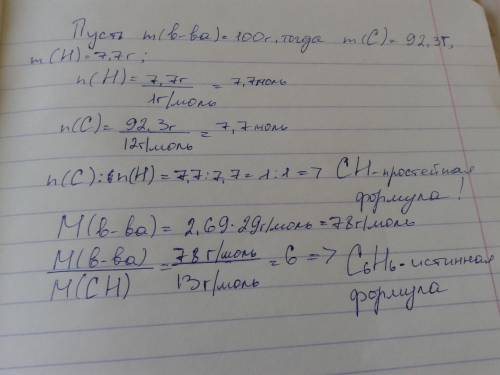 Пусть m(в-ва)=100г, тогда m(C)=92,3г,
m(H)=7,7г;
n(H)=7,7г/1г/моль=7,7моль
n(C)=92,3г/12г/моль=7,7моль
n(C):n(H)=7,7:7,7=1:1=> CH-простейная формула!
M(в-ва)=2,69·29г/моль=78г/моль
M(в-ва)/M(CH)=78г/моль/13г/моль=6=> C6H6-истинная формула